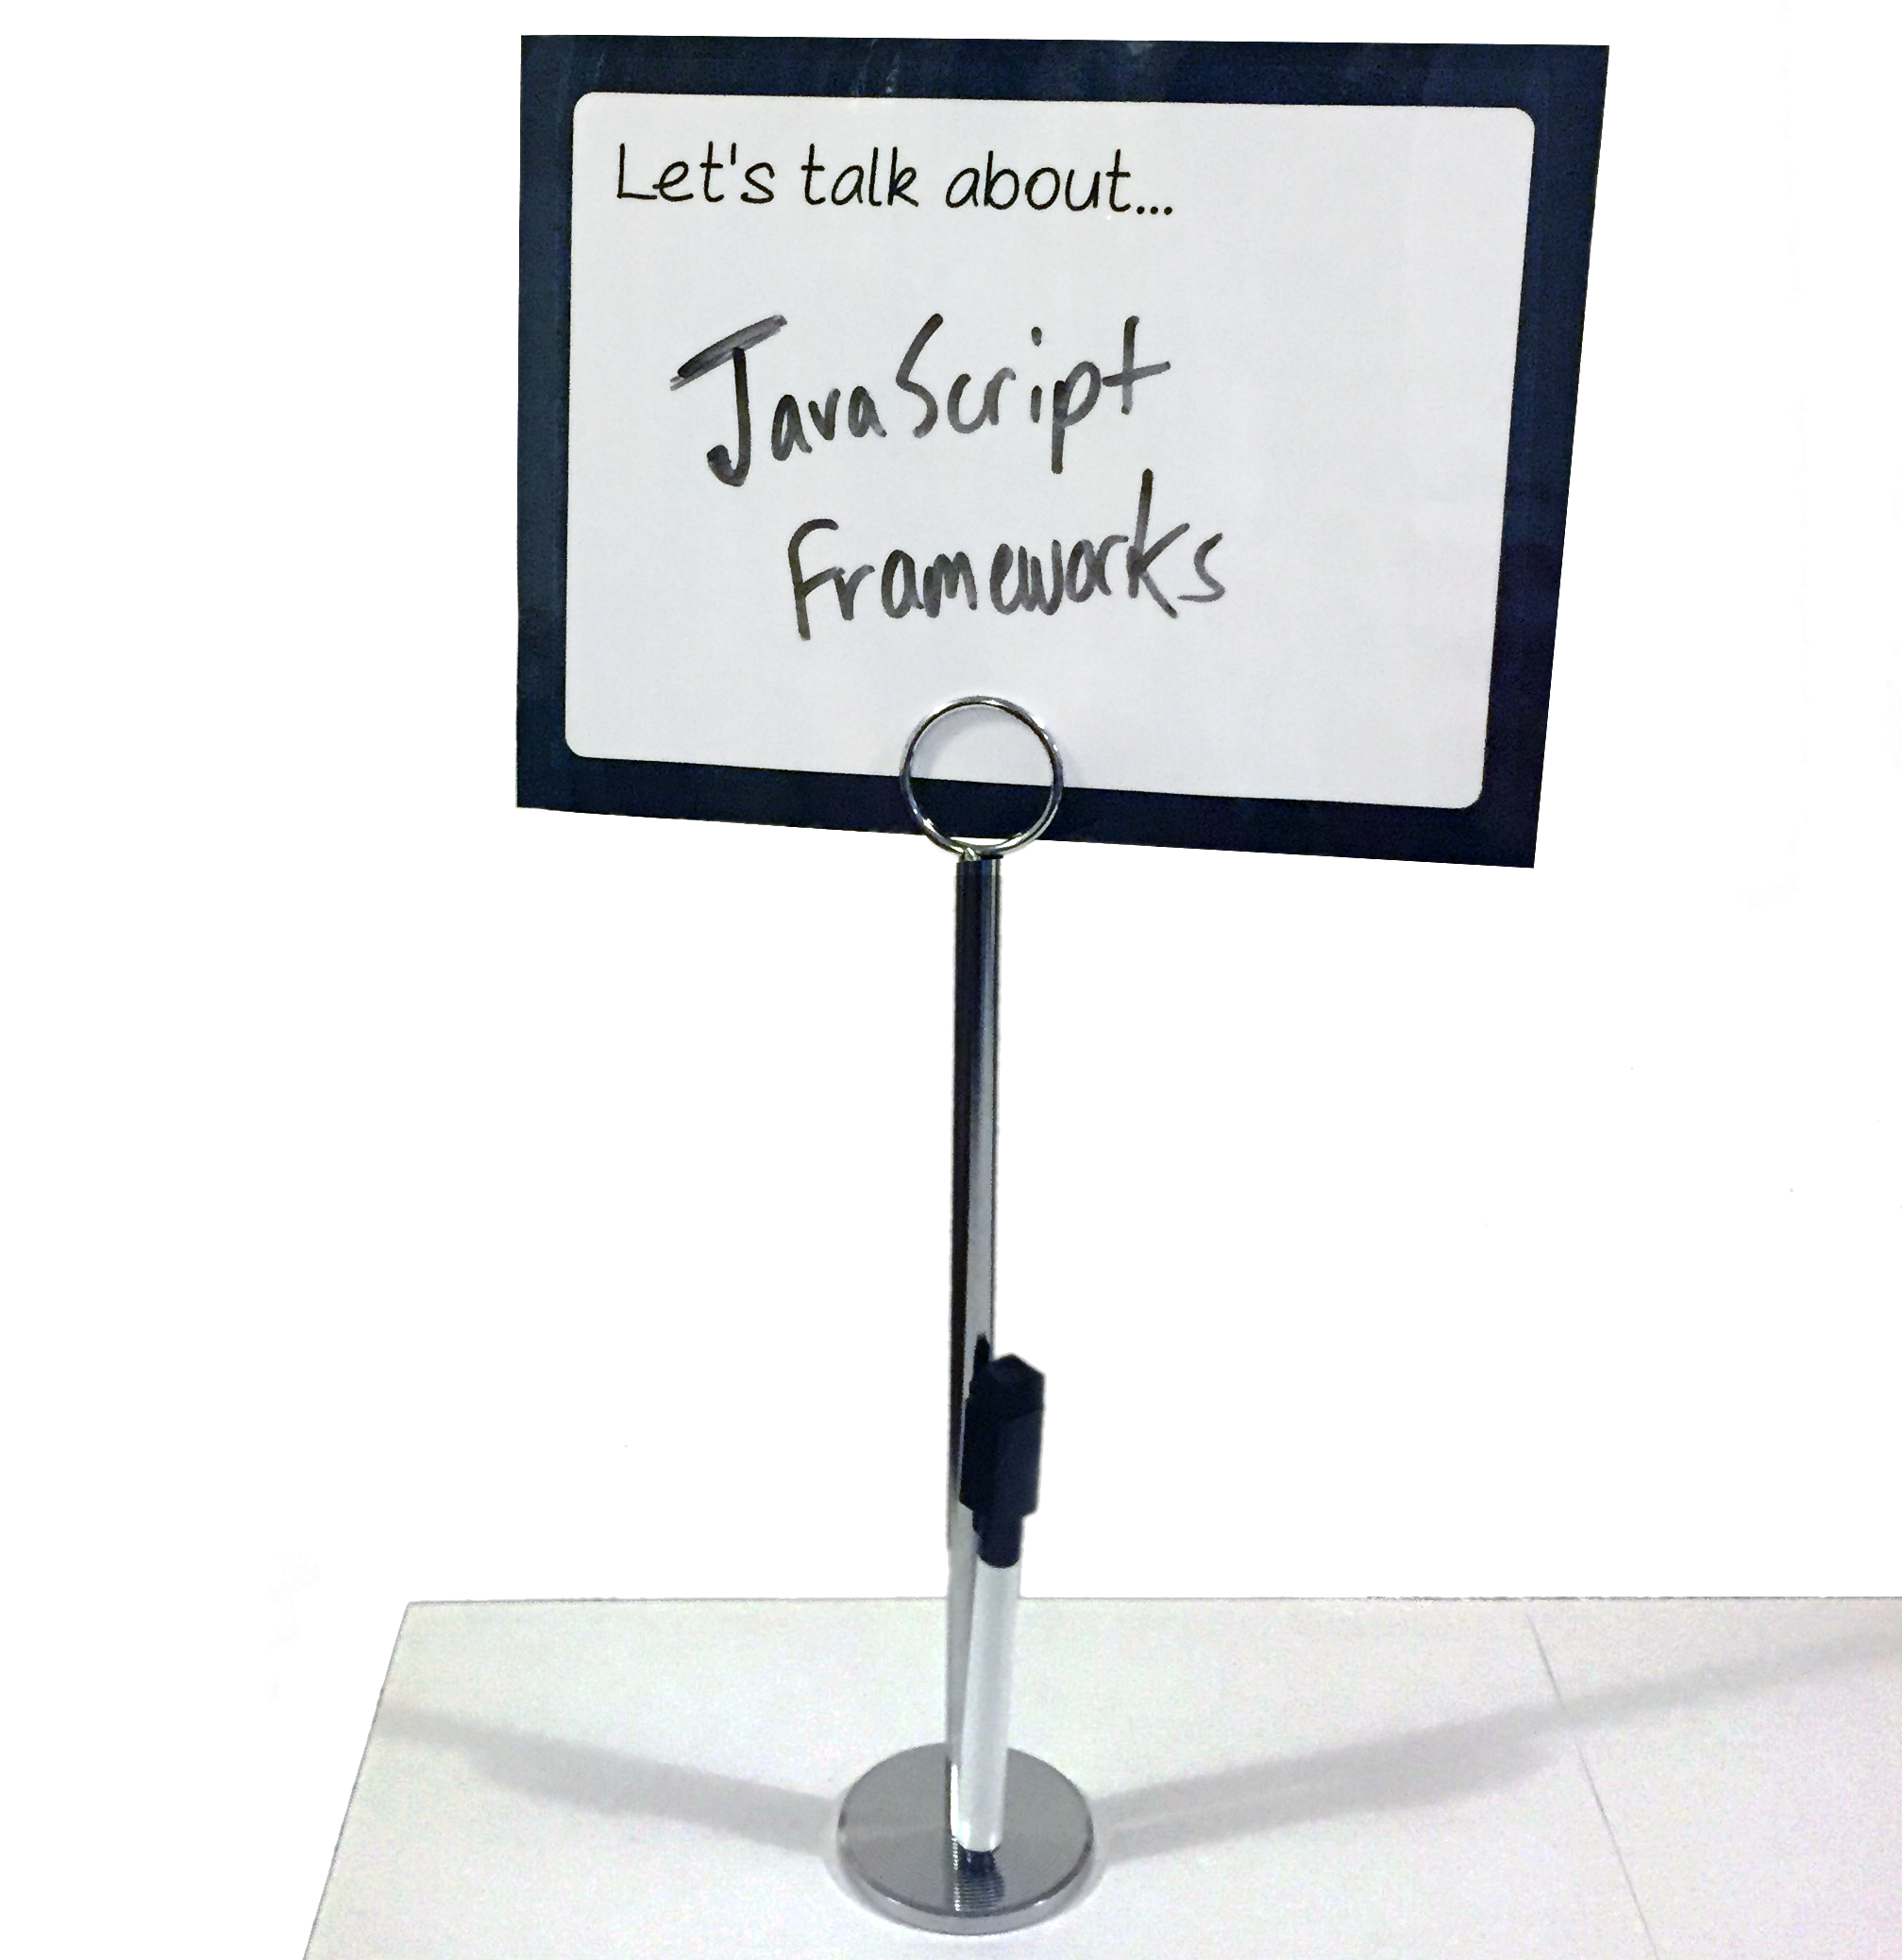 Let's talk about...
JavaScript
Frameworks